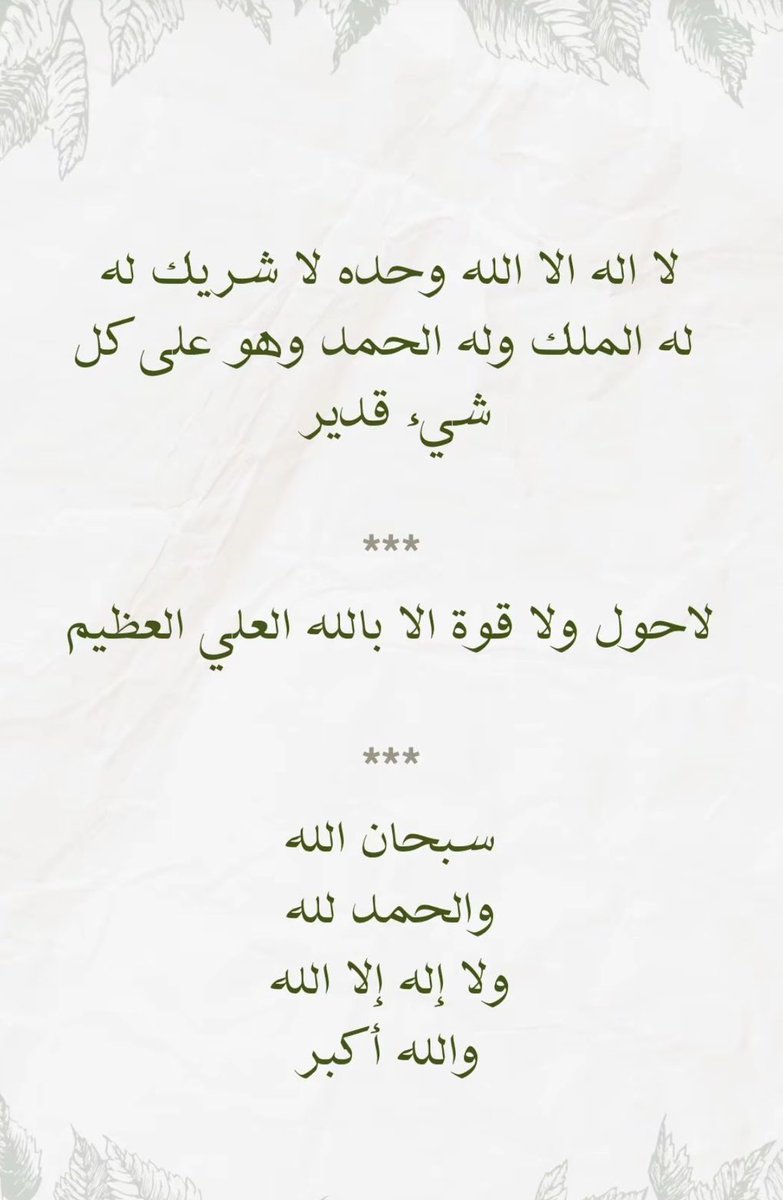 لا اله الا الله وحده لا شريك له
له الملك وله الحمد وهو على كل
شيء قدير
***
لاحول ولا قوة الا بالله العلي العظيم
***
سبحان الله
والحمد لله
ولا إله إلا الله
والله أكبر